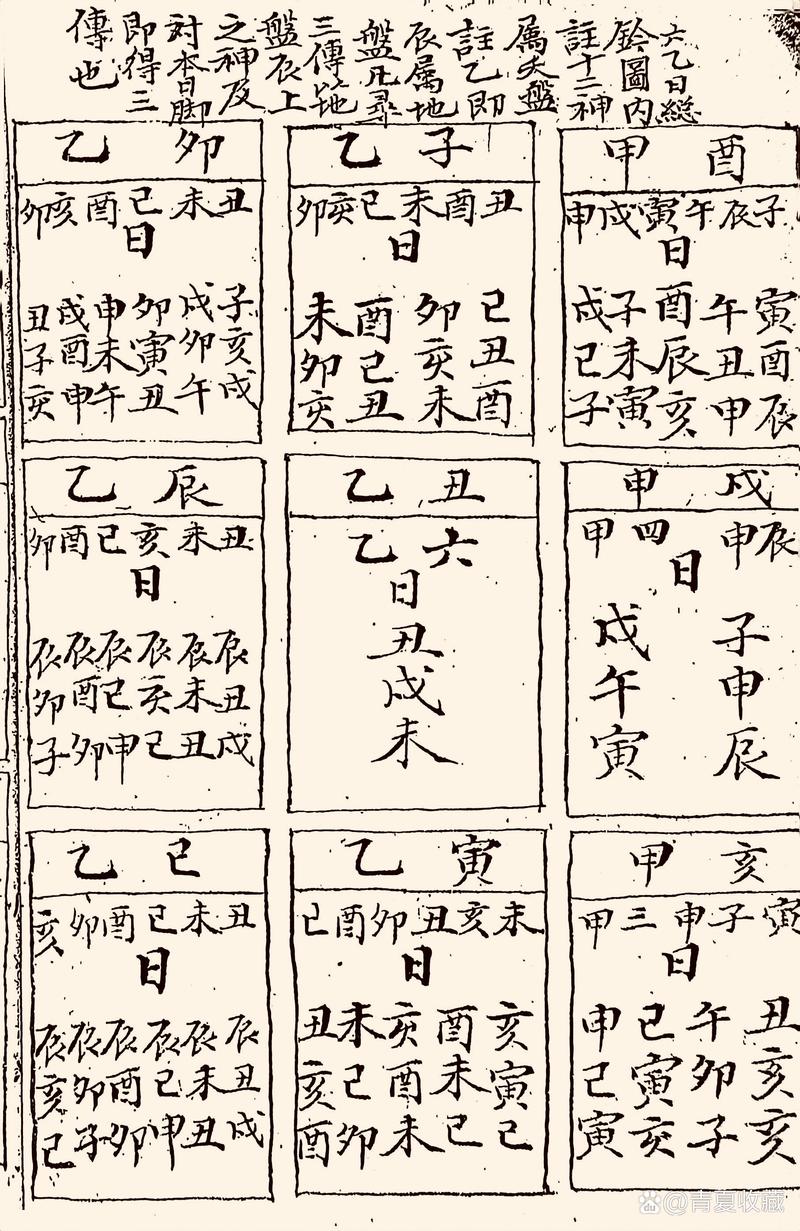 六乙日総
鈐圖内
註十二神
属天盤
註乙即
辰属地
盤凡尋
三傳以地
盤辰上
之神及
対本日脚
即得三
傳也
酉甲
子辰午寅戌申
日
寅酉辰
午丑申
酉辰亥
子未寅
戌巳子
戌甲
辰申四甲
日
子申辰
戌午寅
亥甲
寅子申三甲
日
丑亥亥
午卯子
巳寅亥
申巳寅
子乙
丑酉未巳亥卯
日
巳丑酉
卯亥未
酉巳丑
未卯亥
丑乙
六乙
日
丑
戌
未
寅乙
未亥丑卯酉巳
日
亥寅巳
酉未巳
亥酉未
未巳卯
丑亥酉
卯乙
丑未巳酉亥卯
日
子亥戌
戌卯午
卯寅丑
申未午
戌酉申
丑子亥
辰乙
丑未亥巳酉卯
日
辰丑戌
辰未丑
辰亥巳
辰巳申
辰酉卯
辰卯子
巳乙
丑未巳酉卯亥
日
辰丑戌
辰未丑
辰巳申
辰酉卯
辰卯子
辰亥巳
百@青夏收藏